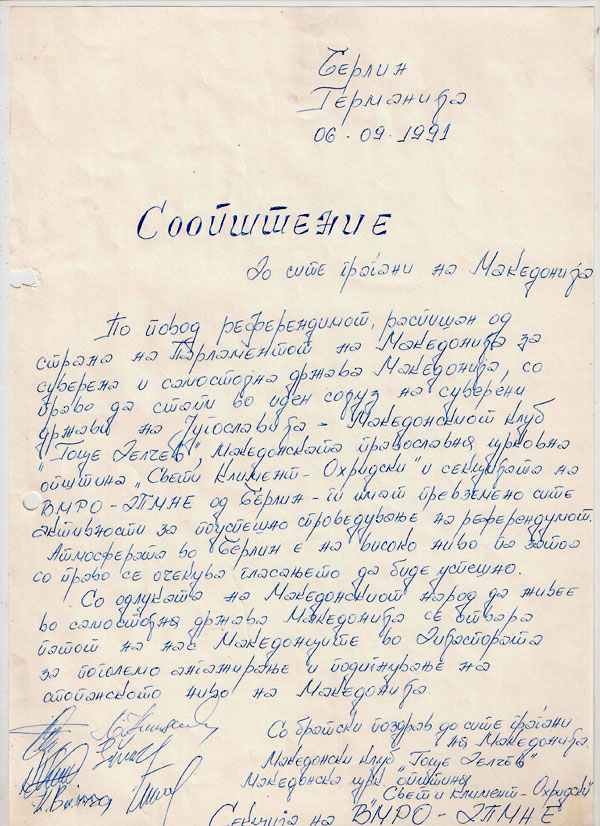 Берлин
Германија
06.09.1991
Соопштение
До сите граѓани на Македонија
По повод референдимот, распишан од
страна на Парламентот на Македонија за
суверена и самостојна држава Македонија, со
право да стапи во иден сојуз на суверени
држави на Југославија - Македонскиот клуб
„Гоце Делчев", Македонската православна црковна
општина „Свети Климент-Охридски" и секцијата на
ВМРО-ДПМНЕ од Берлин - ги имат превземено сите
активности за поуспешно спроведување на референдумот.
Атмосферата во Берлин е на високо ниво па затоа
со право се очекува гласањето да биде успешно.
Со одлуката на Македонскиот народ да живее
во самостојна држава Македонија се отвара
патот на нас Македонците во Дијаспората
за поголемо ангажирање и подигнување на
стопанското ниво на Македонија.
Со братски поздрав до сите граѓани
на Македонија.
Македонски клуб „Гоце Делчев"
Македонска црк. општина
Свети Климент-Охридски"
Секција на ВМРО-ДПМНЕ